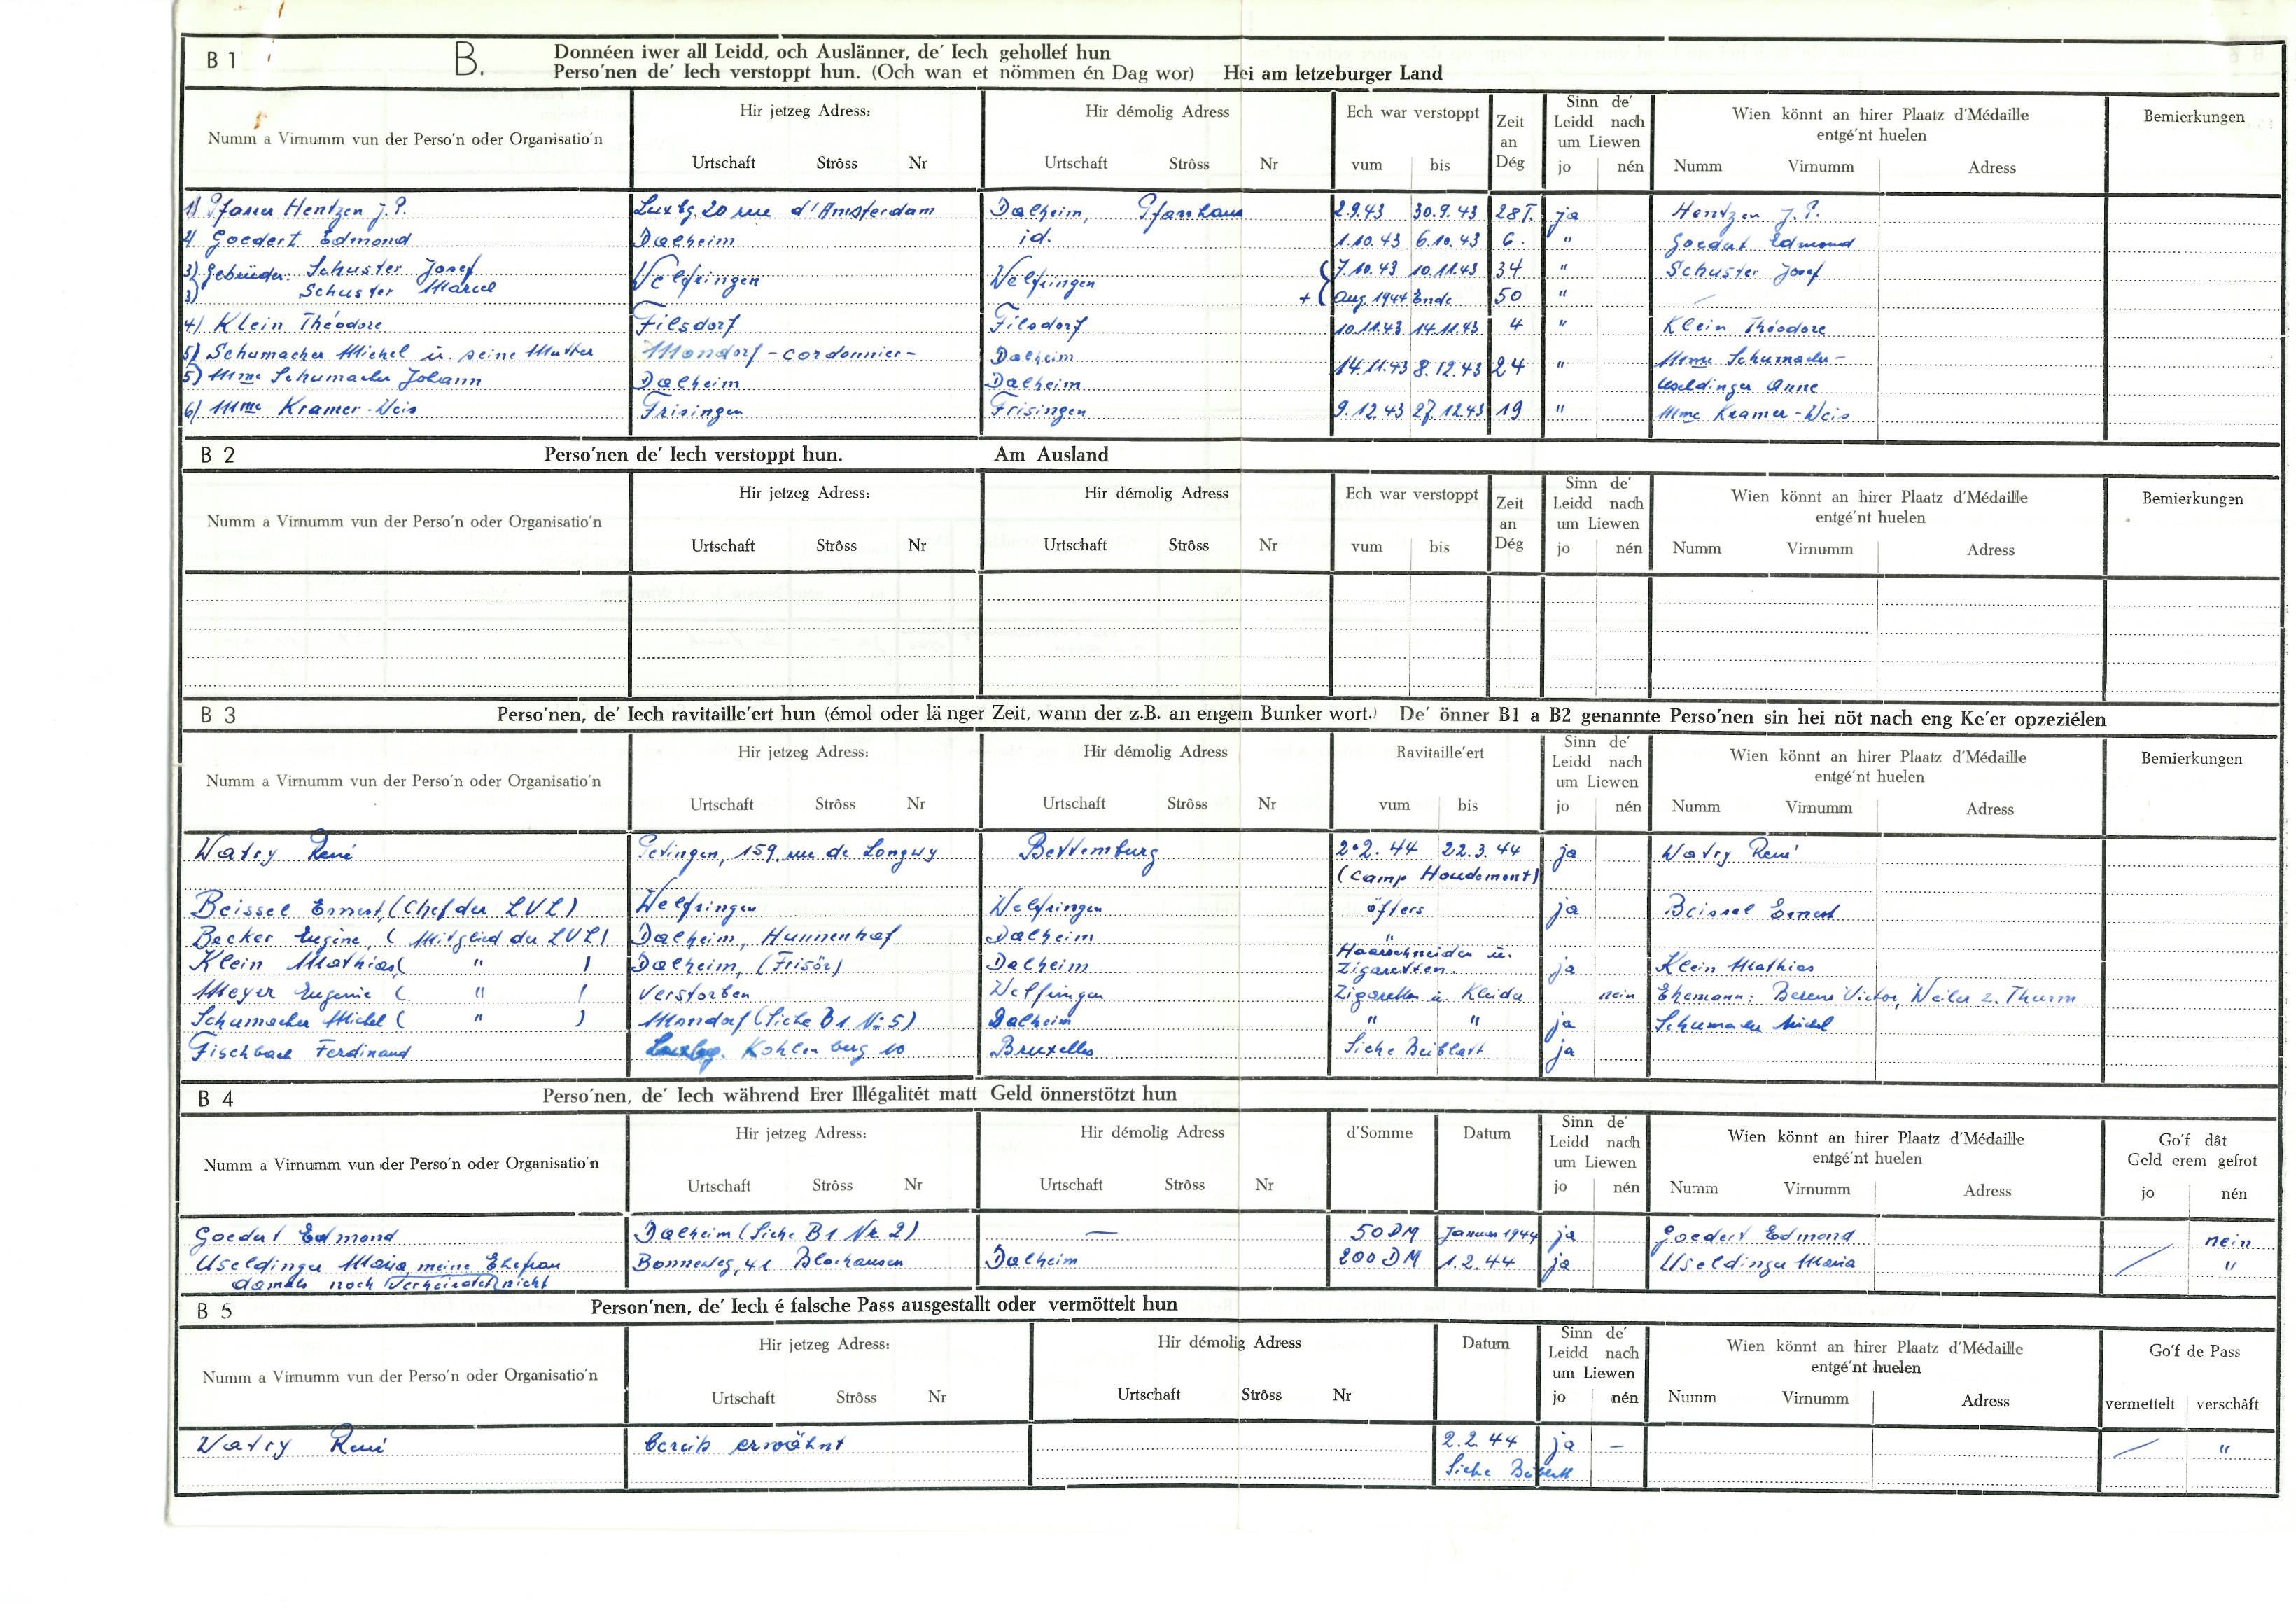 B 1 B. Donnéen iwer all Leidd, och Auslänner, de' Iech gehollef hun
Perso'nen de' Iech verstoppt hun. (Och wan et nömmen én Dag wor) Hei am letzeburger Land
Numm a Virnumm vun der Perso'n oder Organisatio'n Hir jetzeg Adress: Hir démolig Adress Ech war verstoppt Zeit an Dég Sinn de' Leidd nach um Liewen Wien könnt an hirer Plaatz d'Médaille entgé'nt huelen Bemierkungen
Urtschaft Strôss Nr Urtschaft Strôss Nr vum bis jo nén Numm Virnumm Adress
1) Pfarrer Hentzen J.P. Luxbg. 20 rue d'Amsterdam Dalheim, Pfarrhaus 2.9.43 30.9.43 28T. ja Hentzen J.P.
2) Goedert Edmond Dalheim id. 1.10.43 6.10.43 6. " Goedert Edmond
3) Gebrüder: Schuster Josef Welfringen Welfringen (7.10.43 10.11.43 34 " Schuster Josef
3) Schuster Marcel + (Aug. 1944 Ende 50 "
4) Klein Théodore Filsdorf Filsdorf 10.11.43 14.11.43 4 " Klein Théodore
5) Schumacher Michel u. seine Mutter Mondorf - cordonnier - Dalheim 14.11.43 8.12.43 24 " Mme Schumacher-
5) Mme Schumacher Johann Dalheim Dalheim Useldinger Anne
6) Mme Kramer-Weis Frisingen Frisingen 9.12.43 27.12.43 19 " Mme Kramer-Weis
B 2 Perso'nen de' Iech verstoppt hun. Am Ausland
Numm a Virnumm vun der Perso'n oder Organisatio'n Hir jetzeg Adress: Hir démolig Adress Ech war verstoppt Zeit an Dég Sinn de' Leidd nach um Liewen Wien könnt an hirer Plaatz d'Médaille entgé'nt huelen Bemierkungen
Urtschaft Strôss Nr Urtschaft Strôss Nr vum bis jo nén Numm Virnumm Adress
B 3 Perso'nen, de' Iech ravitaille'ert hun (émol oder lä nger Zeit, wann der z.B. an engem Bunker wort.) De' önner B1 a B2 genannte Perso'nen sin hei nöt nach eng Ke'er opzeziélen
Numm a Virnumm vun der Perso'n oder Organisatio'n Hir jetzeg Adress: Hir démolig Adress Ravitaille'ert Sinn de' Leidd nach um Liewen Wien könnt an hirer Plaatz d'Médaille entgé'nt huelen Bemierkungen
Urtschaft Strôss Nr Urtschaft Strôss Nr vum bis jo nén Numm Virnumm Adress
Watry René Petingen, 159, rue de Longwy Bettemburg 2.2.44 22.3.44 ja Watry René
(Camp Houdemont)
Beissel Ernest, (Chef der LVL) Welfringen Welfringen öfters ja Beissel Ernest
Becker Eugène, (Mitglied der LVL) Dalheim, Hunnenhof Dalheim "
Klein Mathias, ( " ) Dalheim, (Frisör) Dalheim Haarschneiden u. Zigaretten. ja Klein Mathias
Meyer Eugenie ( " ) verstorben Welfringen Zigaretten u. Kleider nein Ehemann: Berens Victor, Weiler z. Thurm
Schumacher Michel ( " ) Mondorf (Siehe B1 Nr 5) Dalheim " " ja Schumacher Michel
Fischbach Ferdinand Luxbg. Kohlenberg 10 Bruxelles Siehe Beiblatt ja
B 4 Perso'nen, de' Iech während Erer Illégalitét matt Geld önnerstötzt hun
Numm a Virnumm vun der Perso'n oder Organisatio'n Hir jetzeg Adress: Hir démolig Adress d'Somme Datum Sinn de' Leidd nach um Liewen Wien könnt an hirer Plaatz d'Médaille entgé'nt huelen Go'f dât Geld erem gefrot
Urtschaft Strôss Nr Urtschaft Strôss Nr jo nén Numm Virnumm Adress jo nén
Goedert Edmond Dalheim (Siehe B1 Nr. 2) — 50 DM Januar 1944 ja Goedert Edmond nein
Useldinger Maria, meine Ehefrau Bonneweg, 41 Blochausen Dalheim 200 DM 1.2.44 ja Useldinger Maria "
damals noch verheiratet nicht
B 5 Person'nen, de' Iech é falsche Pass ausgestallt oder vermöttelt hun
Numm a Virnumm vun der Perso'n oder Organisatio'n Hir jetzeg Adress: Hir démolig Adress Datum Sinn de' Leidd nach um Liewen Wien könnt an hirer Plaatz d'Médaille entgé'nt huelen Go'f de Pass
Urtschaft Strôss Nr Urtschaft Strôss Nr jo nén Numm Virnumm Adress vermettelt verschâft
Watry René bereits erwähnt 2.2.44 ja — "
Siehe Beiblatt